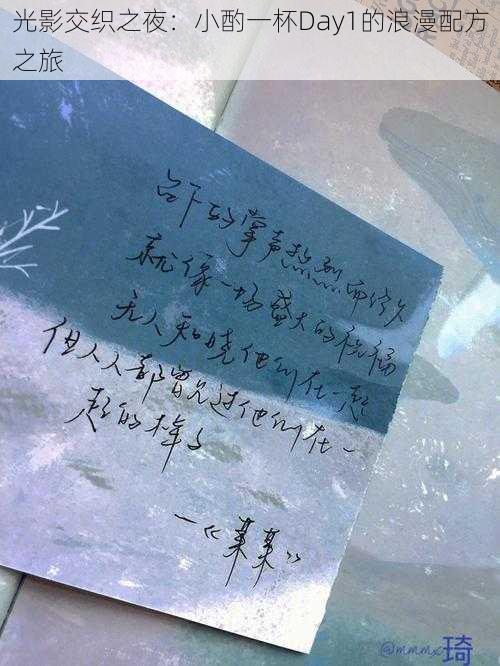 光影交织之夜：小酌一杯Day1的浪漫配方
之旅
台下的掌声热烈而经久
就像一场盛大的祝福
无人知晓他们在一起
但人人都曾见过他们在一
起的样子
—《某某》
@mmmx琦